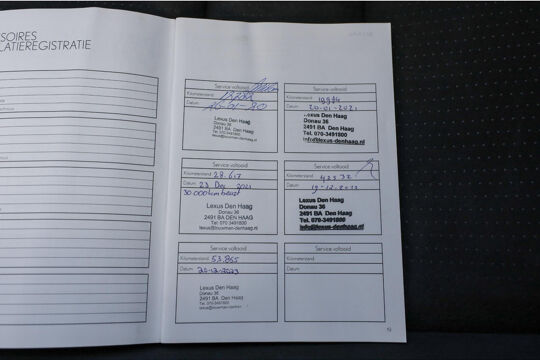 SOIRES
LATIEREGISTRATIE
Service voltooid
Kilometerstand
Datum
Lexus Den Haag
Donau 36
2491 BA Den Haag
Tel. 070-3491800
Service voltooid
Kilometerstand
Datum 20-01-2021
Lexus Den Haag
Donau 36
2491 BA Den Haag
Tel. 070-3491800
info@lexus-denhaag.nl
Service voltooid
Kilometerstand 28.617
Datum 23 Dec 2021
30.000 km beurt
Lexus Den Haag
Donau 36
2491 BA DEN HAAG
Tel. 070-3491800
Service voltooid
Kilometerstand
Datum
Lexus Den Haag
Donau 36
2491 BA Den Haag
Tel. 070-3491800
info@lexus-denhaag.nl
Service voltooid
Kilometerstand 53.865
Datum 20-12-2023
Lexus Den Haag
Donau 36
2491 BA Den Haag
Tel. 070-3491800
Service voltooid
Kilometerstand
Datum